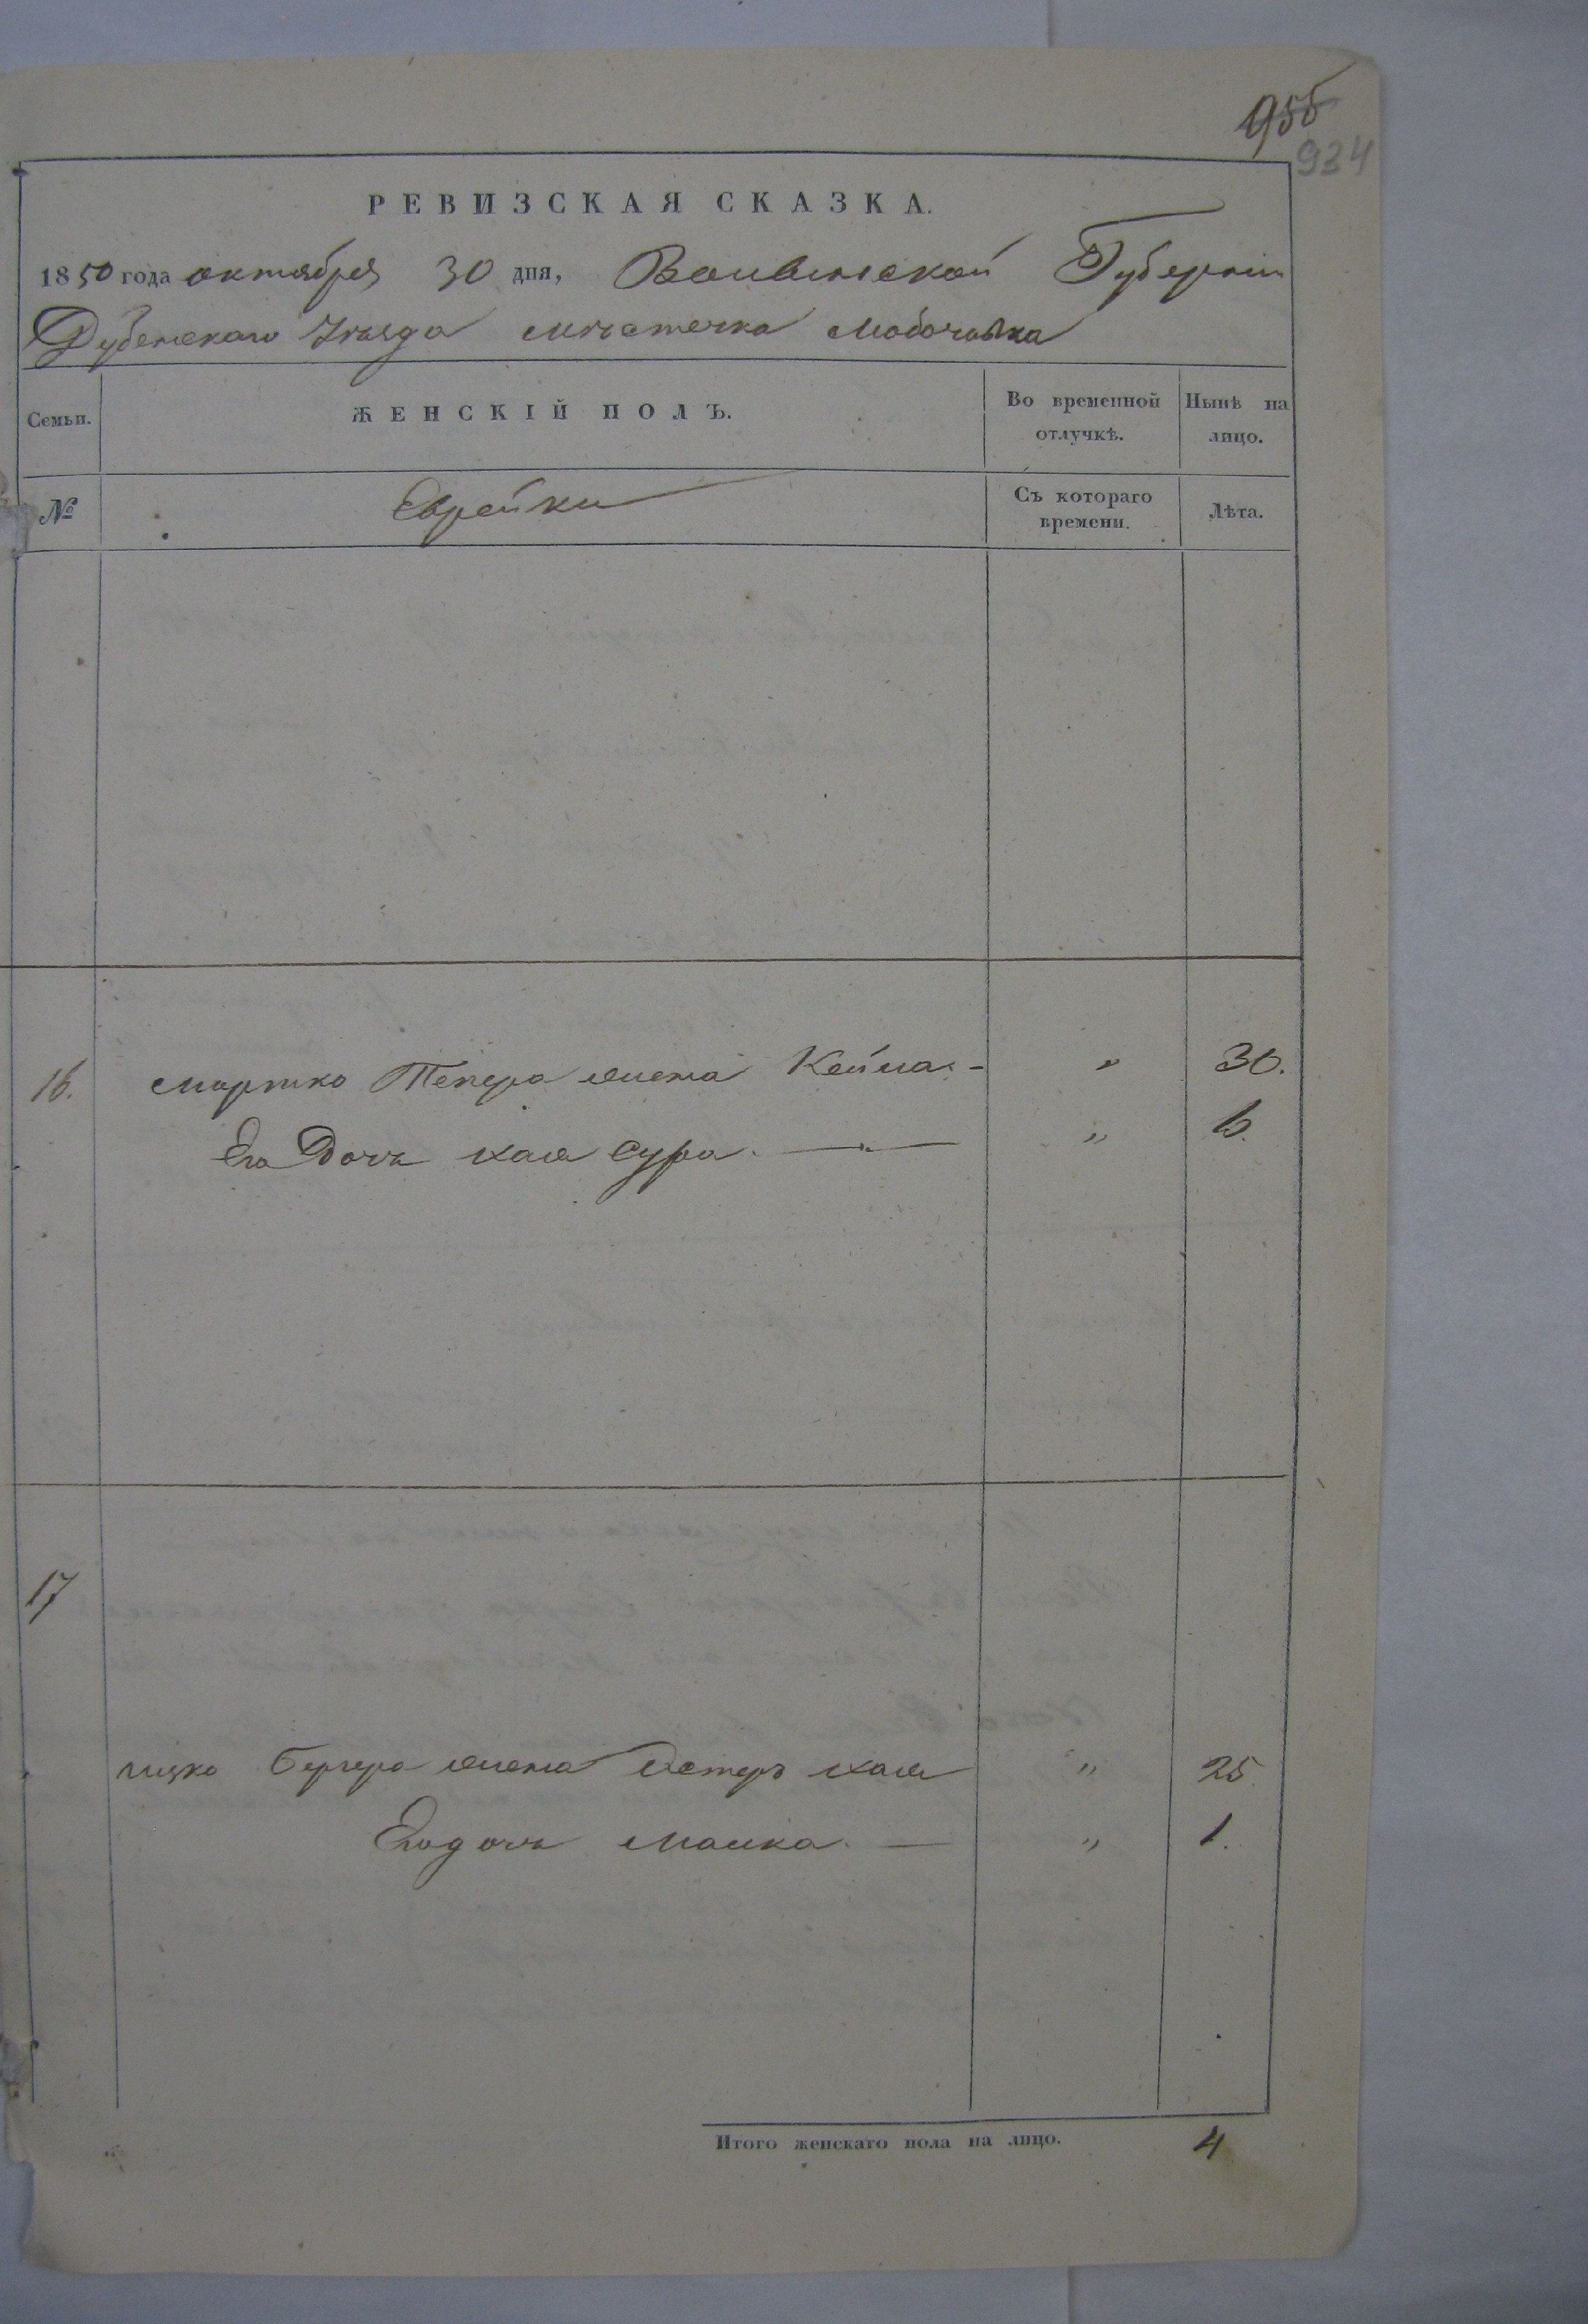 955
934
РЕВИЗСКАЯ СКАЗКА.
1850 года октября 30 дня, Волынской Губернии
Дубенскаго Уѣзда мѣстечка
Семьи. ЖЕНСКІЙ ПОЛЪ. Во временной отлучкѣ. Нынѣ на лицо.
№ Еврейки Съ котораго времени. Лѣта.
16. Мортко Тепера жена Кейла - " 30.
Его Дочь Хая Сура. — " 6.
17
Ицко Бергера жена Естеръ Хая " 25.
Его дочь Малка. — " 1.
Итого женскаго пола на лицо. 4